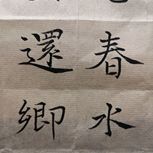 春水
還鄉